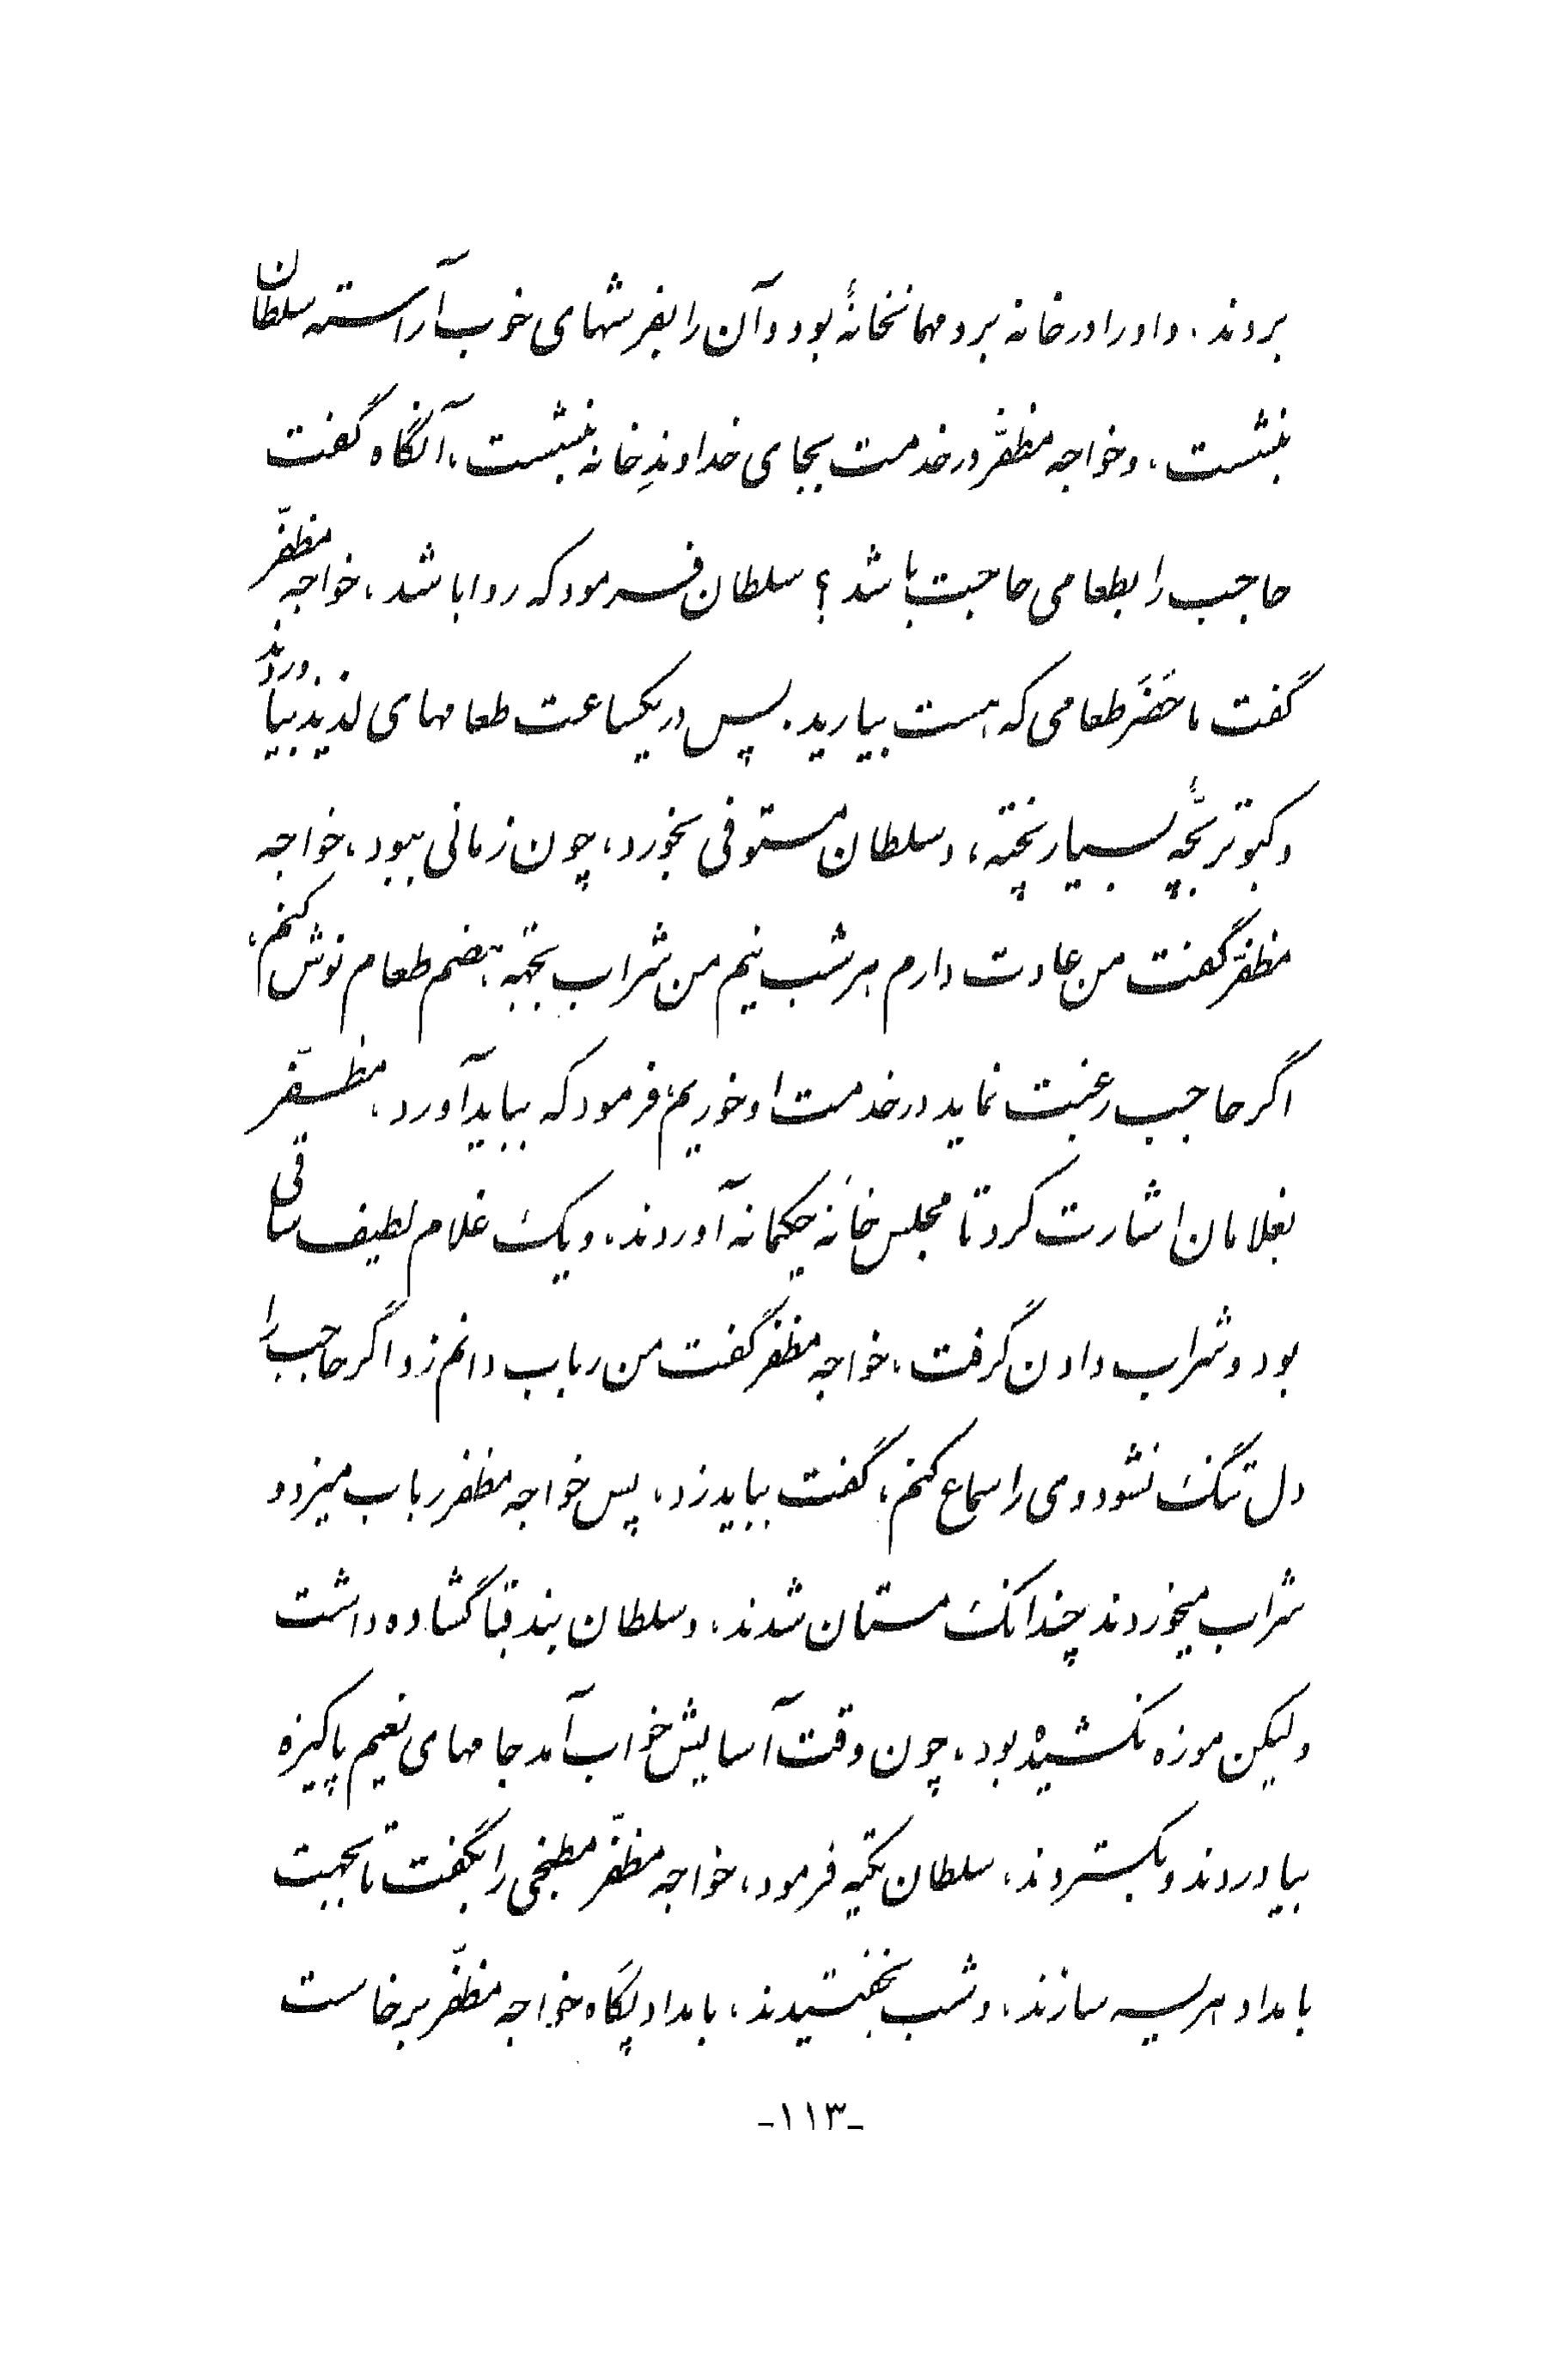 بردند. و او را در خانه برد و مهمانخانهٔ بود و آن را بفرشهای خوب آراسته سلطان
بنشست، و خواجه مظفّر در خدمت بجای خداوندِ خانه بنشست، آنگاه گفت
حاجب را بطعامی حاجت باشد؟ سلطان فرمود که روا باشد، خواجه مظفّر
گفت ماحَضَر طعامی که هست بیارید. پس در یکساعت طعامهای لذیذ بیاوردند
و کبوتر بچّهٔ بسیار پخته، و سلطان مستوفی بخورد، چون زمانی ببود، خواجه
مظفّر گفت من عادت دارم هر شب نیم من شراب بجهة هضم طعام نوش کنم،
اگر حاجب رغبت نماید در خدمت او خوریم، فرمود که بباید آورد، مظفّر
بغلامان اشارت کرد تا مجلس خانهٔ حکیمانه آوردند، و یک غلام لطیف ساقی
بود و شراب دادن گرفت، خواجه مظفر گفت من رباب دانم زد اگر حاجب را
دل تنگ نشود وی را سماع کنم، گفت بباید زد، پس خواجه مظفر رباب میزد و
شراب میخوردند چندانک مستان شدند، و سلطان بند قبا گشاده داشت
ولیکن موزه نکشیده بود، چون وقت آسایش خواب آمد جامهای نعیم پاکیزه
بیاوردند و بگستردند، سلطان تکیه فرمود، خواجه مظفّر مطبخی را بگفت تا بجهت
بامداد هریسه سازند، و شب بخفتیدند، بامداد پگاه خواجه مظفّر برخاست
-۱۱۳-